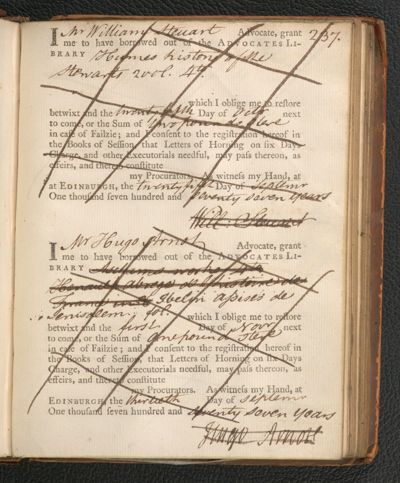 237.
I Mr William Steuart Advocate, grant
me to have borrowed out of the ADVOCATES LI-
BRARY Humes history of the
Stewarts 2 vol. 4to.
which I oblige me to restore
betwixt and the twenty fifth Day of Octr next
to come, or the Sum of Two pound
in case of Failzie; and I consent to the registration hereof in
the Books of Session, that Letters of Horning on six Days
Charge, and other Executorials needful, may pass thereon, as
effeirs, and thereto constitute
my Procurators. As witness my Hand, at
at EDINBURGH, the twenty fifth Day of Septemr
One thousand seven hundred and Seventy seven years
Will: Steuart
I Mr Hugo Arnot Advocate, grant
me to have borrowed out of the ADVOCATES LI-
BRARY
Henault abrege de l'histoire de
France Ibelin assises de
Jerusalem, fol. which I oblige me to restore
betwixt and the first Day of Novr next
to come, or the Sum of One pound
in case of Failzie; and I consent to the registration hereof in
the Books of Session, that Letters of Horning on six Days
Charge, and other Executorials needful, may pass thereon, as
effeirs, and thereto constitute
my Procurators. As witness my Hand, at
EDINBURGH, the thirtieth Day of Septemr
One thousand seven hundred and seventy seven years
Hugo Arnot